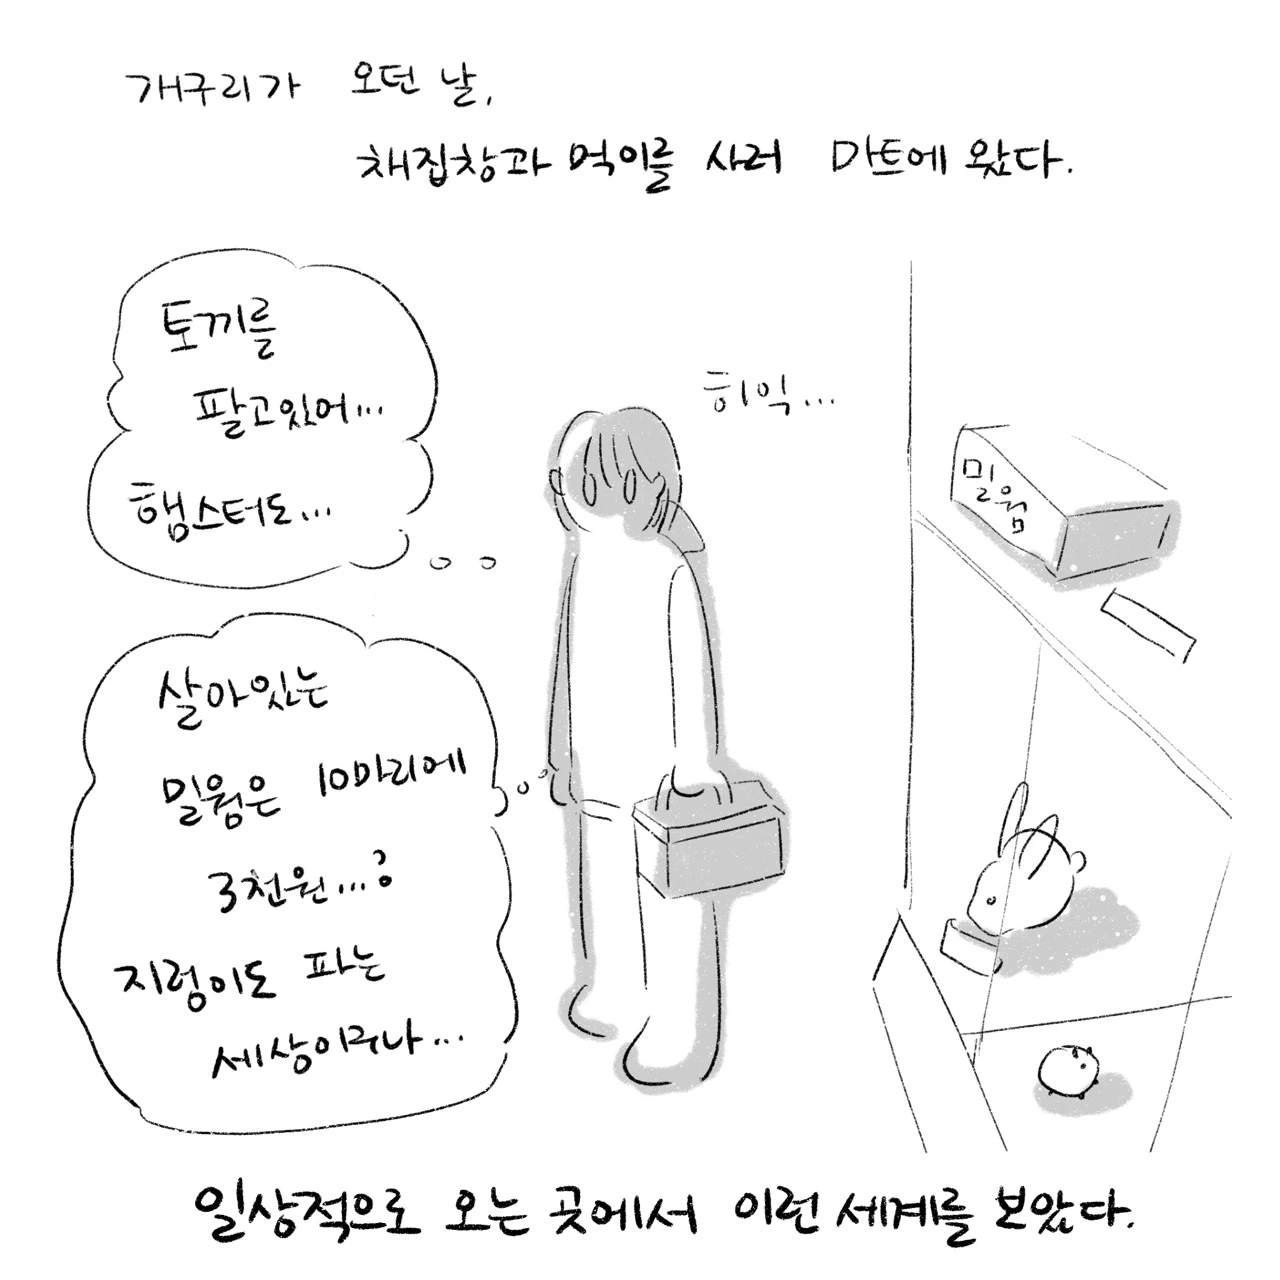 개구리가 오던 날,
채집창과 먹이를 사러 마트에 왔다.
토끼를
팔고있어...
햄스터도...
히익...
밀웜
살아있는
밀웜은 10마리에
3천원...?
지렁이도 파는
세상이구나...
일상적으로 오는 곳에서 이런 세계를 보았다.